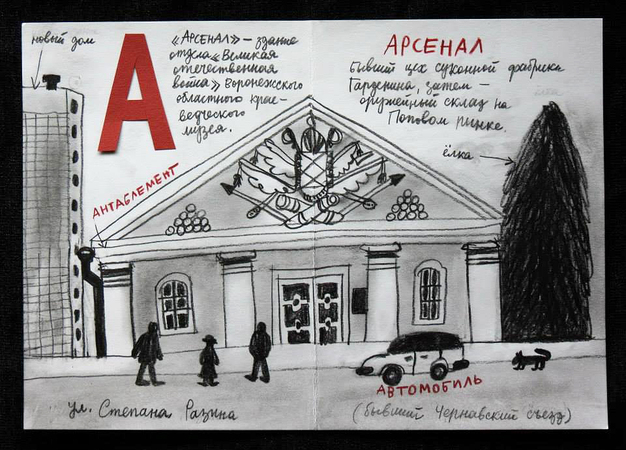 новый дом
А
«АРСЕНАЛ» – здание
отдела «Великая
отечественная
война» Воронежского
областного крае-
ведческого
музея.
АРСЕНАЛ
бывший цех суконной фабрики
Гарденина, затем –
оружейный склад на
Поповом рынке.
ёлка
АНТАБЛЕМЕНТ
АВТОМОБИЛЬ
ул. Степана Разина
(бывший Чернавский съезд)